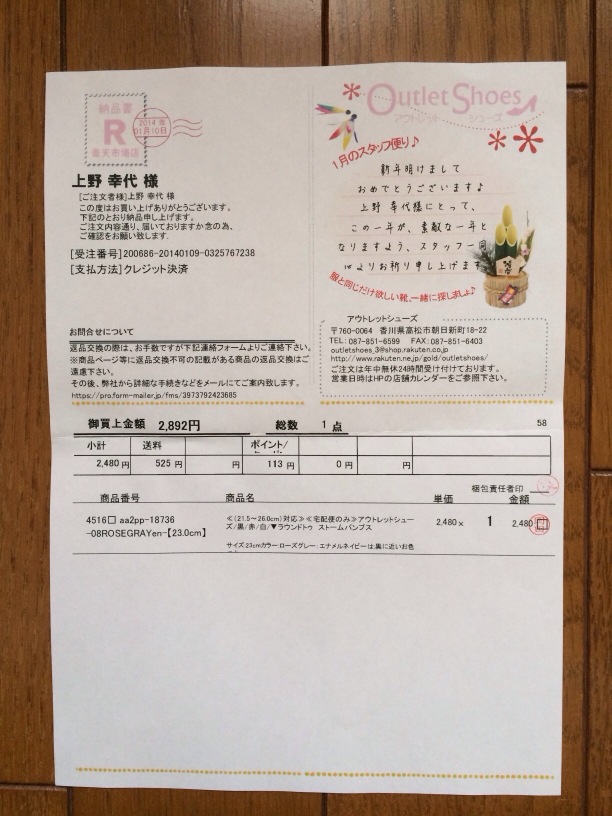 納品書
R
楽天市場店
2014年
01月10日
上野 幸代 様
[ご注文者様]上野 幸代 様
この度はお買い上げありがとうございます。
下記のとおり納品申し上げます。
ご注文内容通り、届いておりますか念の為、
ご確認をお願い致します.
[受注番号]200686-20140109-0325767238
[支払方法]クレジット決済
お問合せについて
返品交換の際は、お手数ですが下記連絡フォームよりご連絡下さい。
※商品ページ等に返品交換不可の記載がある商品の返品交換はご
遠慮下さい。
その後、弊社から詳細な手続きなどをメールにてご案内致します。
https://pro.form-mailer.jp/fms/3973792423685
Outlet Shoes
アウトレット シューズ
1月のスタッフ便り♪
新年明けまして
おめでとうございます♪
上野 幸代様にとって、
この一年が、素敵な一年と
なりますよう、スタッフ一同
心よりお祈り申し上げます
服と同じだけ欲しい靴、一緒に探しましょ♪
アウトレットシューズ
〒760-0064 香川県高松市朝日新町18-22
TEL: 087-851-6599 FAX: 087-851-6403
outletshoes_3@shop.rakuten.co.jp
http://www.rakuten.ne.jp/gold/outletshoes/
ご注文は年中無休24時間受け付けております。
営業日時はHPの店舗カレンダーをご参照下さい。
御買上金額 2,892円 総数 1 点 58
小計 送料 ポイント/
2,480 円 525 円 円 113 円 0 円 円
梱包責任者印
商品番号 商品名 単価 金額
4516□ aa2pp-18736
-08ROSEGRAYen-【23.0cm】
≪(21.5～26.0cm)対応≫≪宅配便のみ≫アウトレットシュー
ズ/黒/赤/白/▼ラウンドトゥ ストームパンプス
2,480 × 1 2,480
サイズ:23cmカラー:ローズグレー:エナメルネイビーは:黒に近いお色